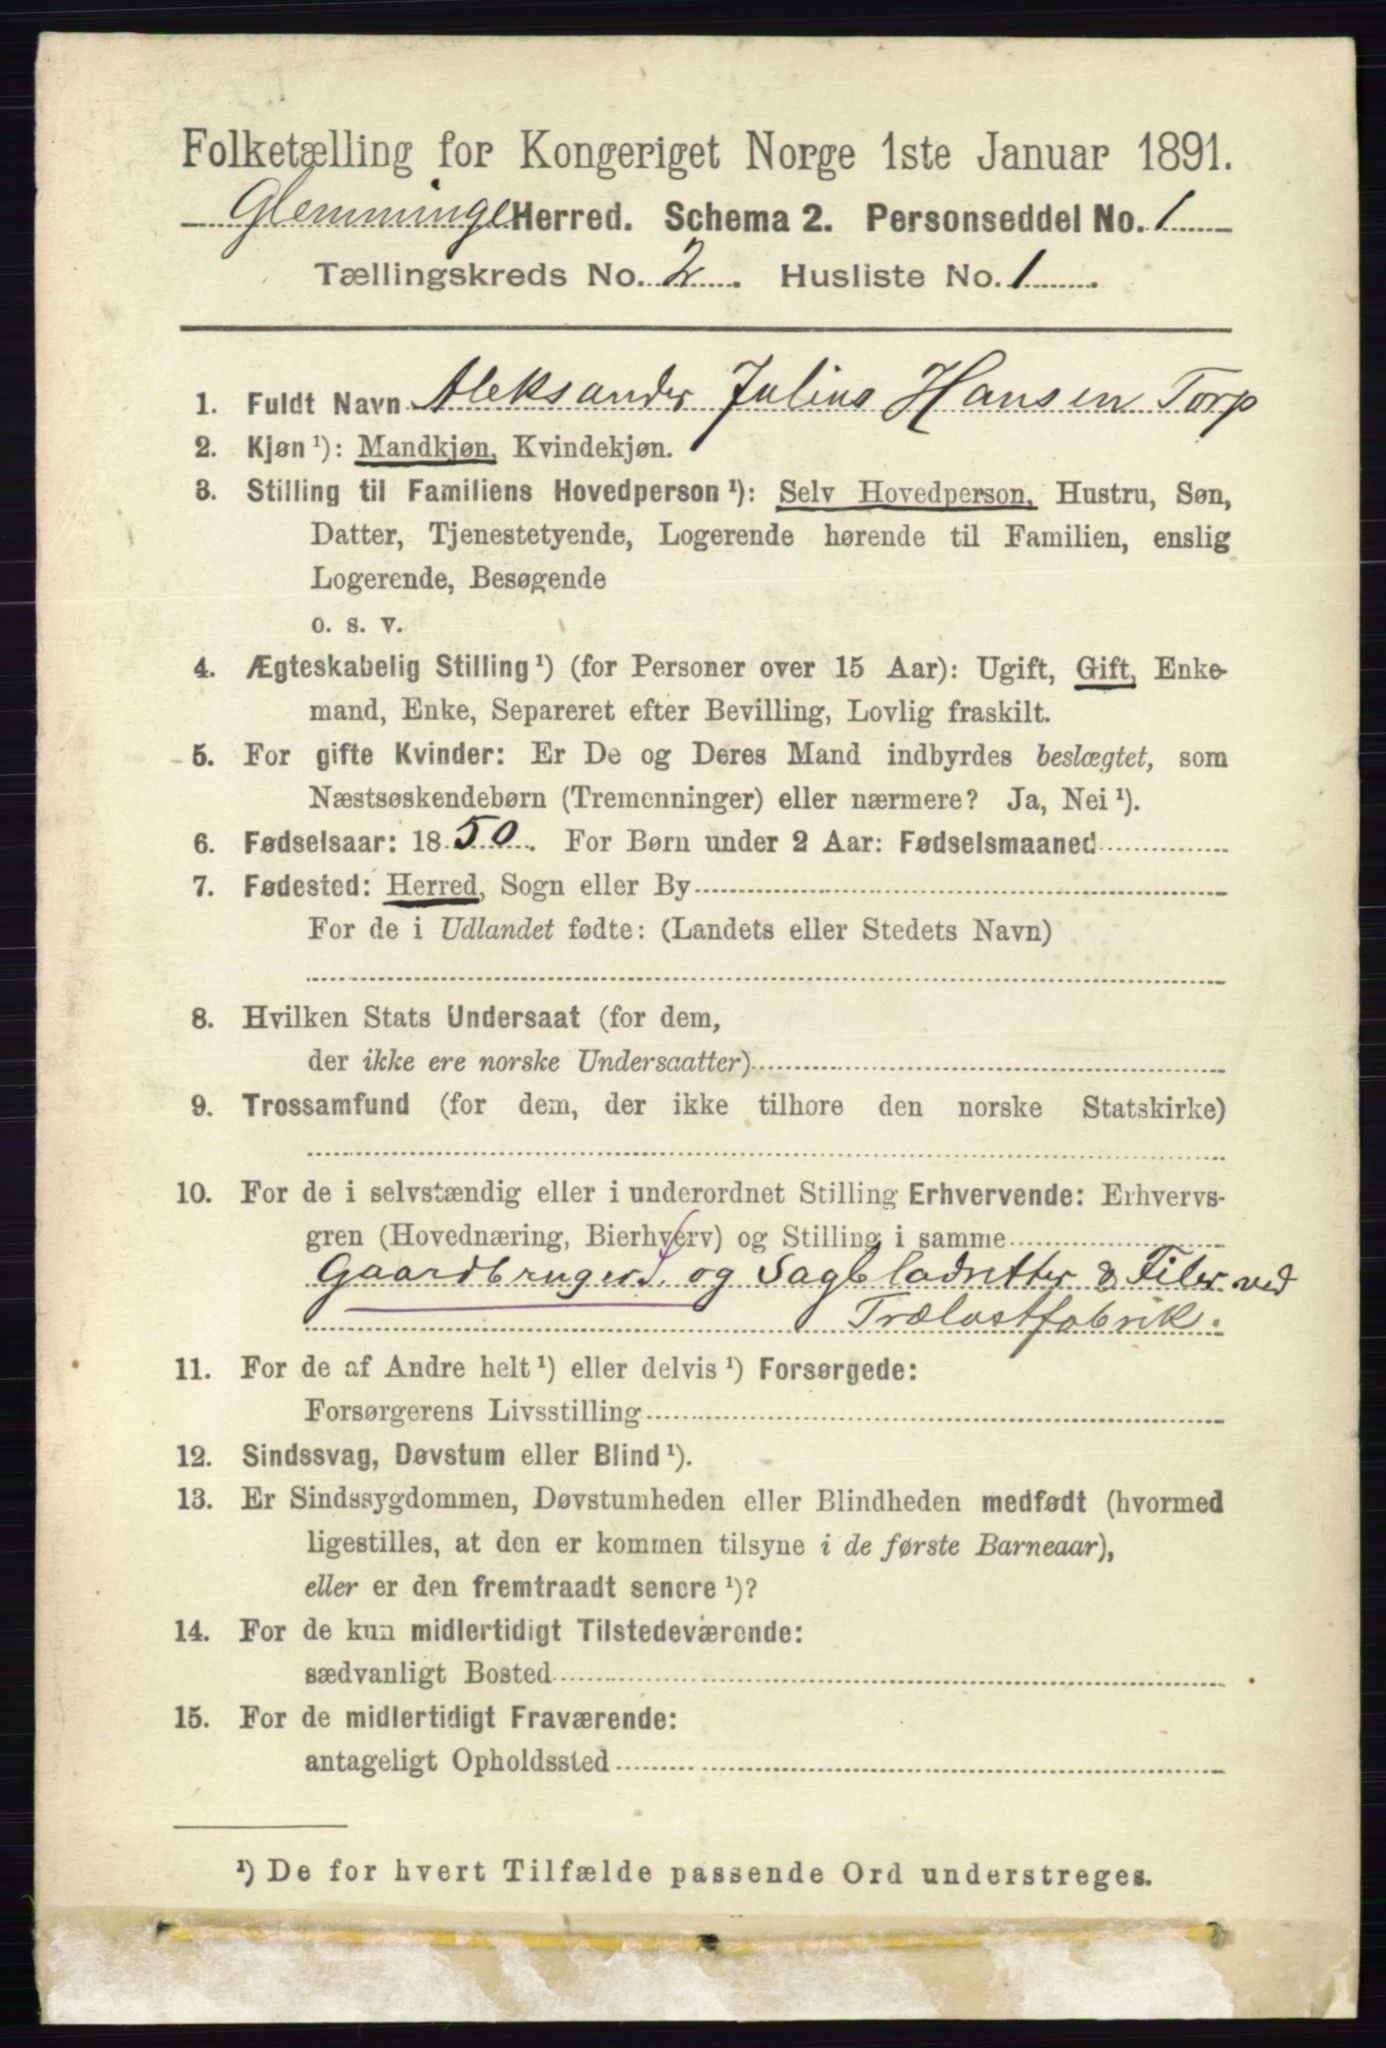 Folketælling for Kongeriget Norge 1ste Januar 1891.
Glemminge Herred. Schema 2. Personseddel No. 1
Tællingskreds No. 2. Husliste No. 1.
1. Fuldt Navn Aleksander Julius Hansen Torp
2. Kjøn ¹): Mandkjøn, Kvindekjøn.
3. Stilling til Familiens Hovedperson ¹): Selv Hovedperson, Hustru, Søn,
Datter, Tjenestetyende, Logerende hørende til Familien, enslig
Logerende, Besøgende
o. s. v.
4. Ægteskabelig Stilling ¹) (for Personer over 15 Aar): Ugift, Gift, Enke-
mand, Enke, Separeret efter Bevilling, Lovlig fraskilt.
5. For gifte Kvinder: Er De og Deres Mand indbyrdes beslægtet, som
Næstsøskendebørn (Tremenninger) eller nærmere? Ja, Nei ¹).
6. Fødselsaar: 1850. For Børn under 2 Aar: Fødselsmaaned
7. Fødested: Herred, Sogn eller By
For de i Udlandet fødte: (Landets eller Stedets Navn)
8. Hvilken Stats Undersaat (for dem,
der ikke ere norske Undersaatter)
9. Trossamfund (for dem, der ikke tilhøre den norske Statskirke)
10. For de i selvstændig eller i underordnet Stilling Erhvervende: Erhvervs-
gren (Hovednæring, Bierhverv) og Stilling i samme
Gaardbruger S. og Sagbladretter & Filer ved
Trælastfabrik.
11. For de af Andre helt ¹) eller delvis ¹) Forsørgede:
Forsørgerens Livsstilling
12. Sindssvag, Døvstum eller Blind ¹).
13. Er Sindssygdommen, Døvstumheden eller Blindheden medfødt (hvormed
ligestilles, at den er kommen tilsyne i de første Barneaar),
eller er den fremtraadt senere ¹)?
14. For de kun midlertidigt Tilstedeværende:
sædvanligt Bosted
15. For de midlertidigt Fraværende:
antageligt Opholdssted
¹) De for hvert Tilfælde passende Ord understreges.